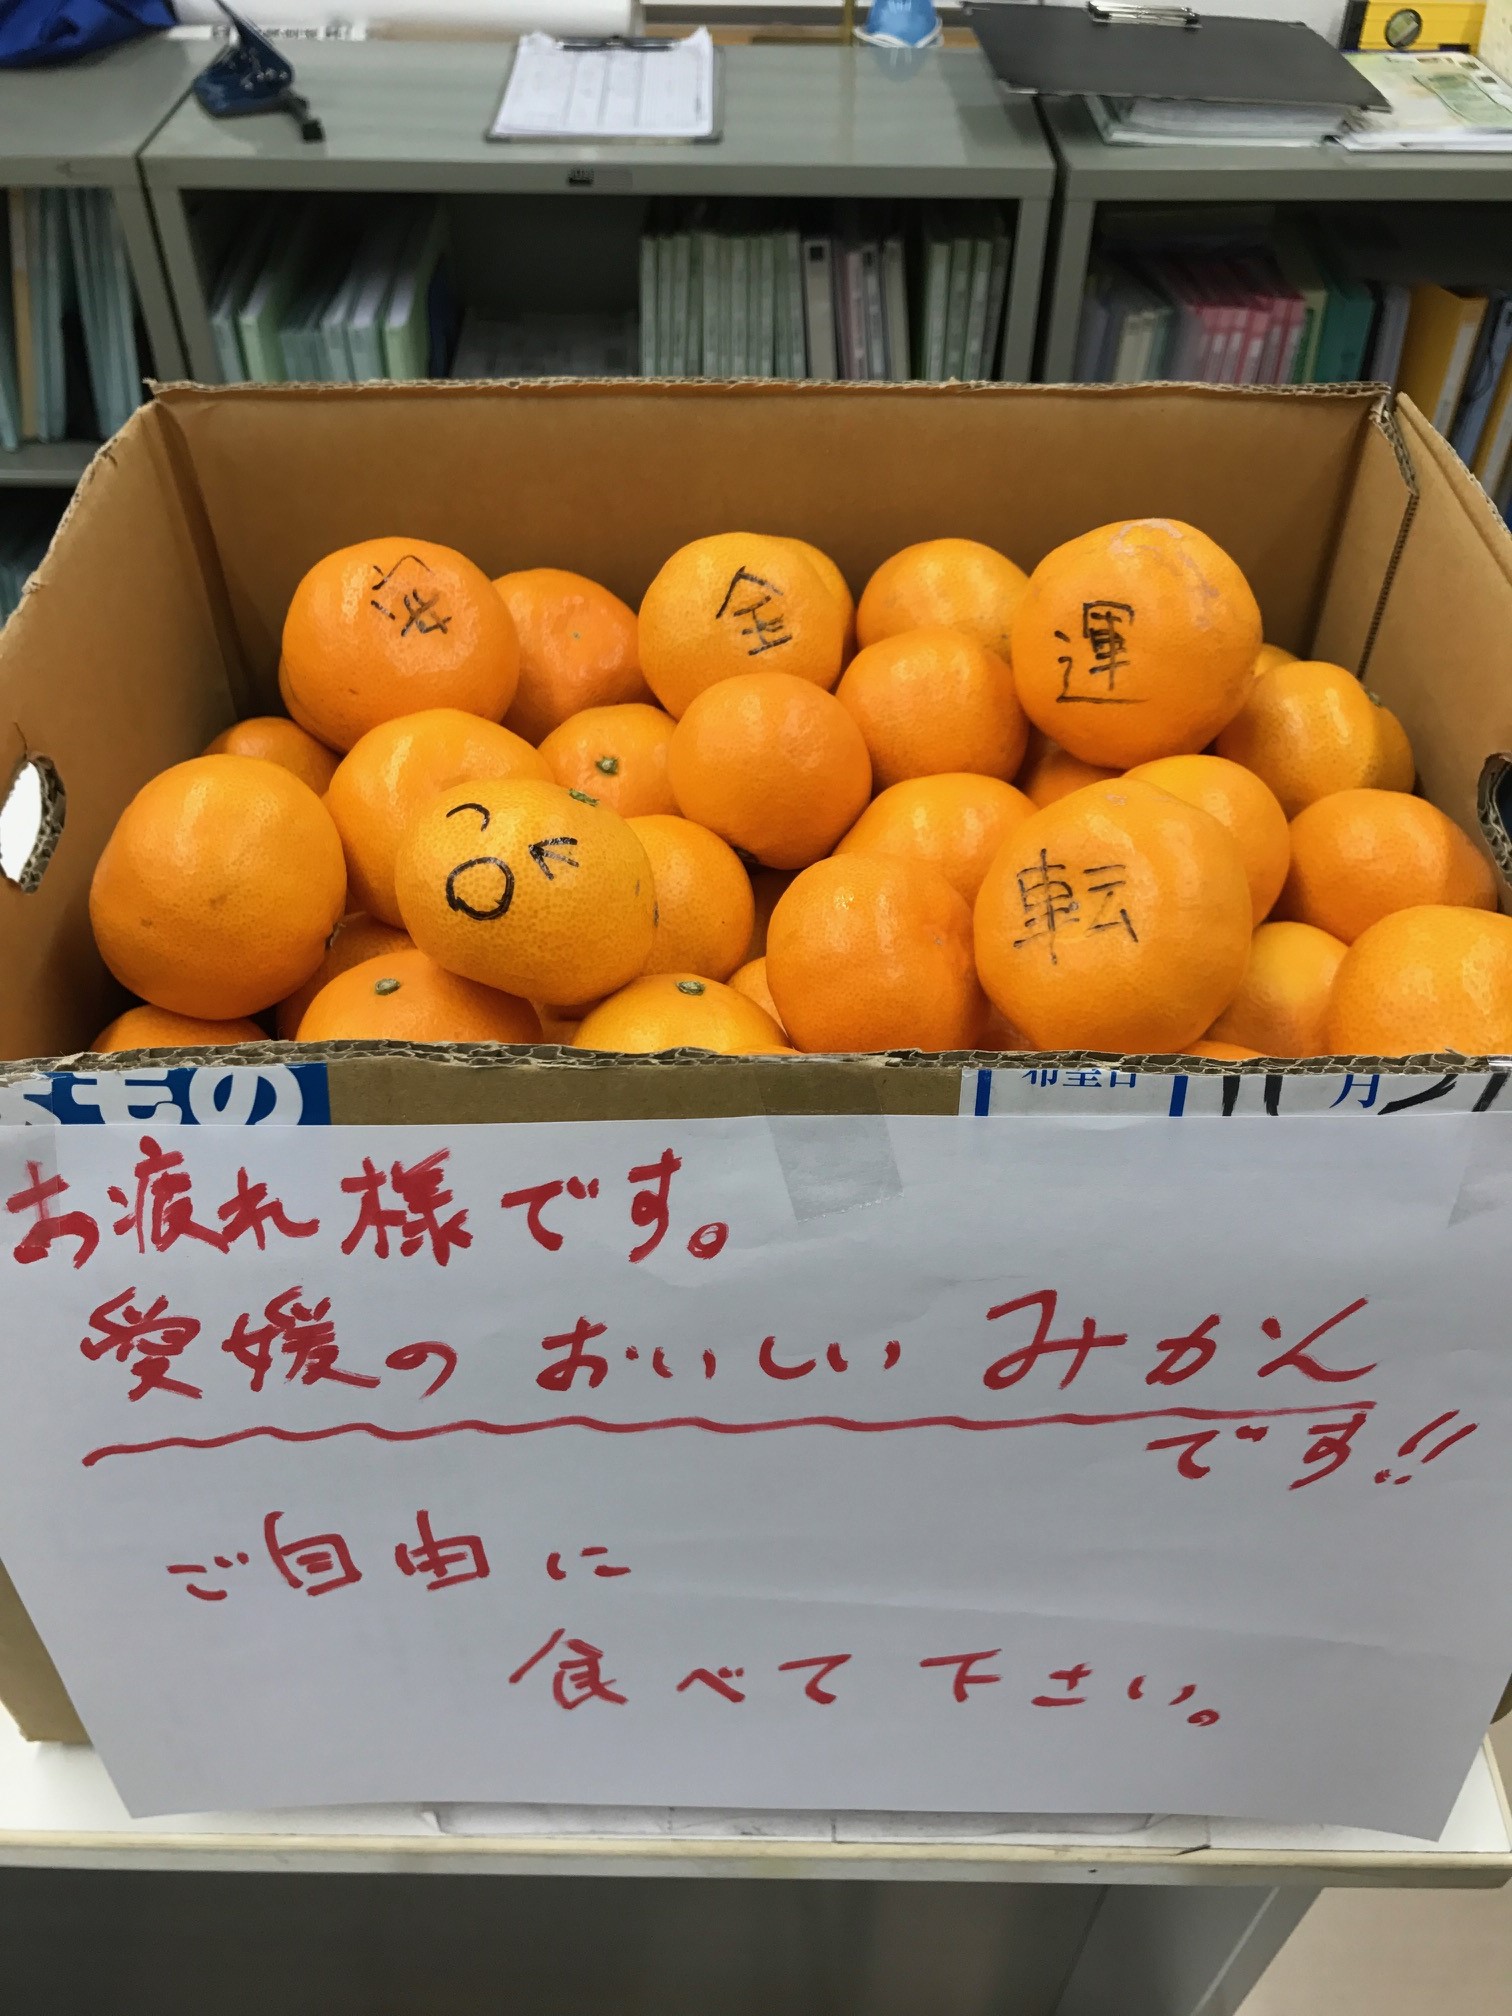 安 全 運
転
お疲れ様です。
愛媛のおいしいみかん
です!!
ご自由に
食べて下さい。